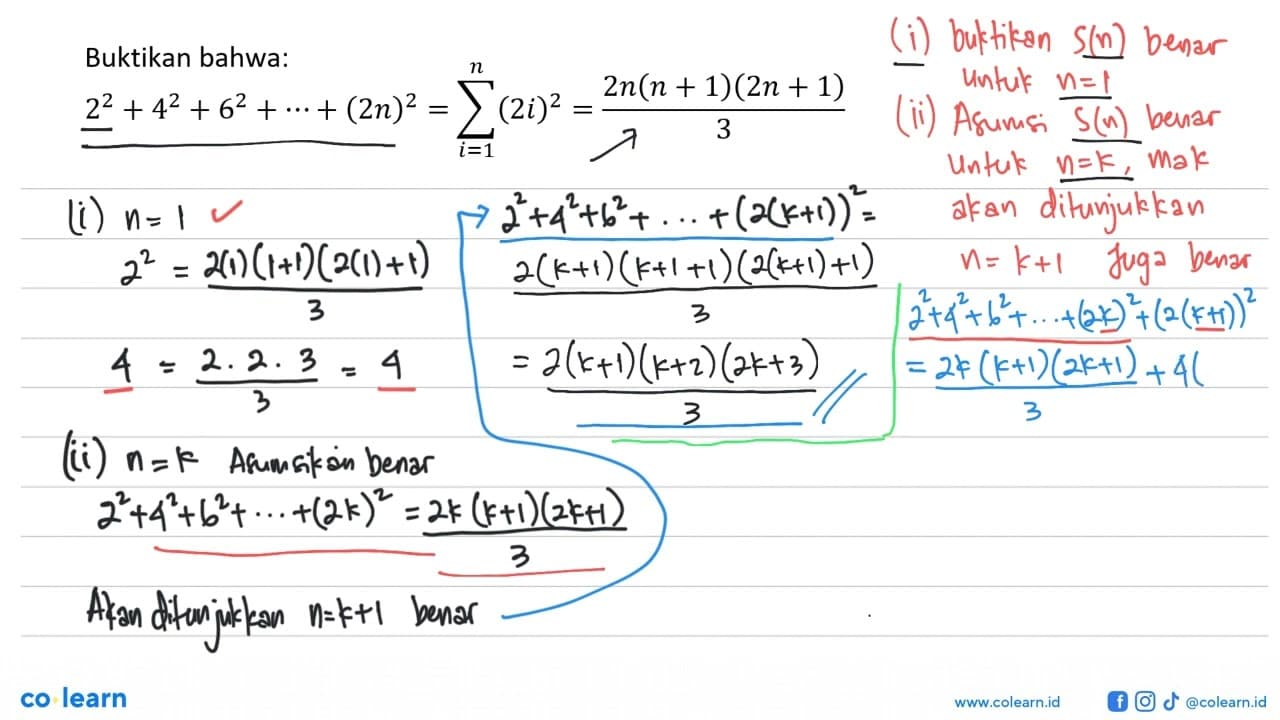 Buktikan bahwa:
2² + 4² + 6² + ⋯ + (2n)² = ∑_{i=1}^{n} (2i)² = 2n(n + 1)(2n + 1)/3
(i) buktikan S(n) benar
untuk n=1
(ii) Asumsi S(n) benar
untuk n=k, mak
akan ditunjukkan
n= k+1 juga benar
(i) n= 1 ✓
2² = 2(1)(1+1)(2(1)+1)/3
4 = 2.2.3/3 = 4
(ii) n=k Asumsikan benar
2²+4²+6²+ ... +(2k)² = 2k(k+1)(2k+1)/3
Akan ditunjukkan n=k+1 benar
2²+4²+6²+ ... +(2(k+1))² =
2(k+1)(k+1+1)(2(k+1)+1)/3
= 2(k+1)(k+2)(2k+3)/3
2²+4²+6²+...+(2k)²+(2(k+1))²
= 2k(k+1)(2k+1)/3 + 4(
co learn
www.colearn.id
@colearn.id